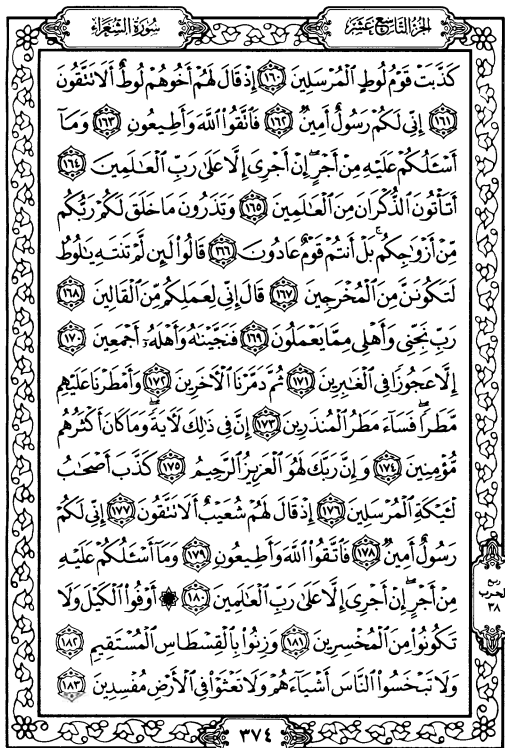 الجزء التاسع عشر
سورة الشعراء
كَذَّبَتْ قَوْمُ لُوطٍ الْمُرْسَلِينَ ١٦٠ إِذْ قَالَ لَهُمْ أَخُوهُمْ لُوطٌ أَلَا تَتَّقُونَ
١٦١ إِنِّي لَكُمْ رَسُولٌ أَمِينٌ ١٦٢ فَاتَّقُوا اللَّهَ وَأَطِيعُونِ ١٦٣ وَمَا
أَسْـَٔلُكُمْ عَلَيْهِ مِنْ أَجْرٍ إِنْ أَجْرِيَ إِلَّا عَلَىٰ رَبِّ الْعَـٰلَمِينَ ١٦٤
أَتَأْتُونَ الذُّكْرَانَ مِنَ الْعَـٰلَمِينَ ١٦٥ وَتَذَرُونَ مَا خَلَقَ لَكُمْ رَبُّكُم
مِّنْ أَزْوَٰجِكُم بَلْ أَنتُمْ قَوْمٌ عَادُونَ ١٦٦ قَالُوا لَئِن لَّمْ تَنتَهِ يَـٰلُوطُ
لَتَكُونَنَّ مِنَ الْمُخْرَجِينَ ١٦٧ قَالَ إِنِّي لِعَمَلِكُم مِّنَ الْقَالِينَ ١٦٨
رَبِّ نَجِّنِي وَأَهْلِي مِمَّا يَعْمَلُونَ ١٦٩ فَنَجَّيْنَـٰهُ وَأَهْلَهُۥٓ أَجْمَعِينَ ١٧٠
إِلَّا عَجُوزًا فِي الْغَـٰبِرِينَ ١٧١ ثُمَّ دَمَّرْنَا الْـَٔاخَرِينَ ١٧٢ وَأَمْطَرْنَا عَلَيْهِم
مَّطَرًا فَسَآءَ مَطَرُ الْمُنذَرِينَ ١٧٣ إِنَّ فِي ذَٰلِكَ لَـَٔايَةً وَمَا كَانَ أَكْثَرُهُم
مُّؤْمِنِينَ ١٧٤ وَإِنَّ رَبَّكَ لَهُوَ الْعَزِيزُ الرَّحِيمُ ١٧٥ كَذَّبَ أَصْحَـٰبُ
لْـَٔيْكَةِ الْمُرْسَلِينَ ١٧٦ إِذْ قَالَ لَهُمْ شُعَيْبٌ أَلَا تَتَّقُونَ ١٧٧ إِنِّي لَكُمْ
رَسُولٌ أَمِينٌ ١٧٨ فَاتَّقُوا اللَّهَ وَأَطِيعُونِ ١٧٩ وَمَآ أَسْـَٔلُكُمْ عَلَيْهِ
مِنْ أَجْرٍ إِنْ أَجْرِيَ إِلَّا عَلَىٰ رَبِّ الْعَـٰلَمِينَ ١٨٠ ۞ أَوْفُوا الْكَيْلَ وَلَا
تَكُونُوا مِنَ الْمُخْسِرِينَ ١٨١ وَزِنُوا بِالْقِسْطَاسِ الْمُسْتَقِيمِ ١٨٢
وَلَا تَبْخَسُوا النَّاسَ أَشْيَآءَهُمْ وَلَا تَعْثَوْا فِي الْأَرْضِ مُفْسِدِينَ ١٨٣
ربع
الحزب
٣٨
٣٧٤